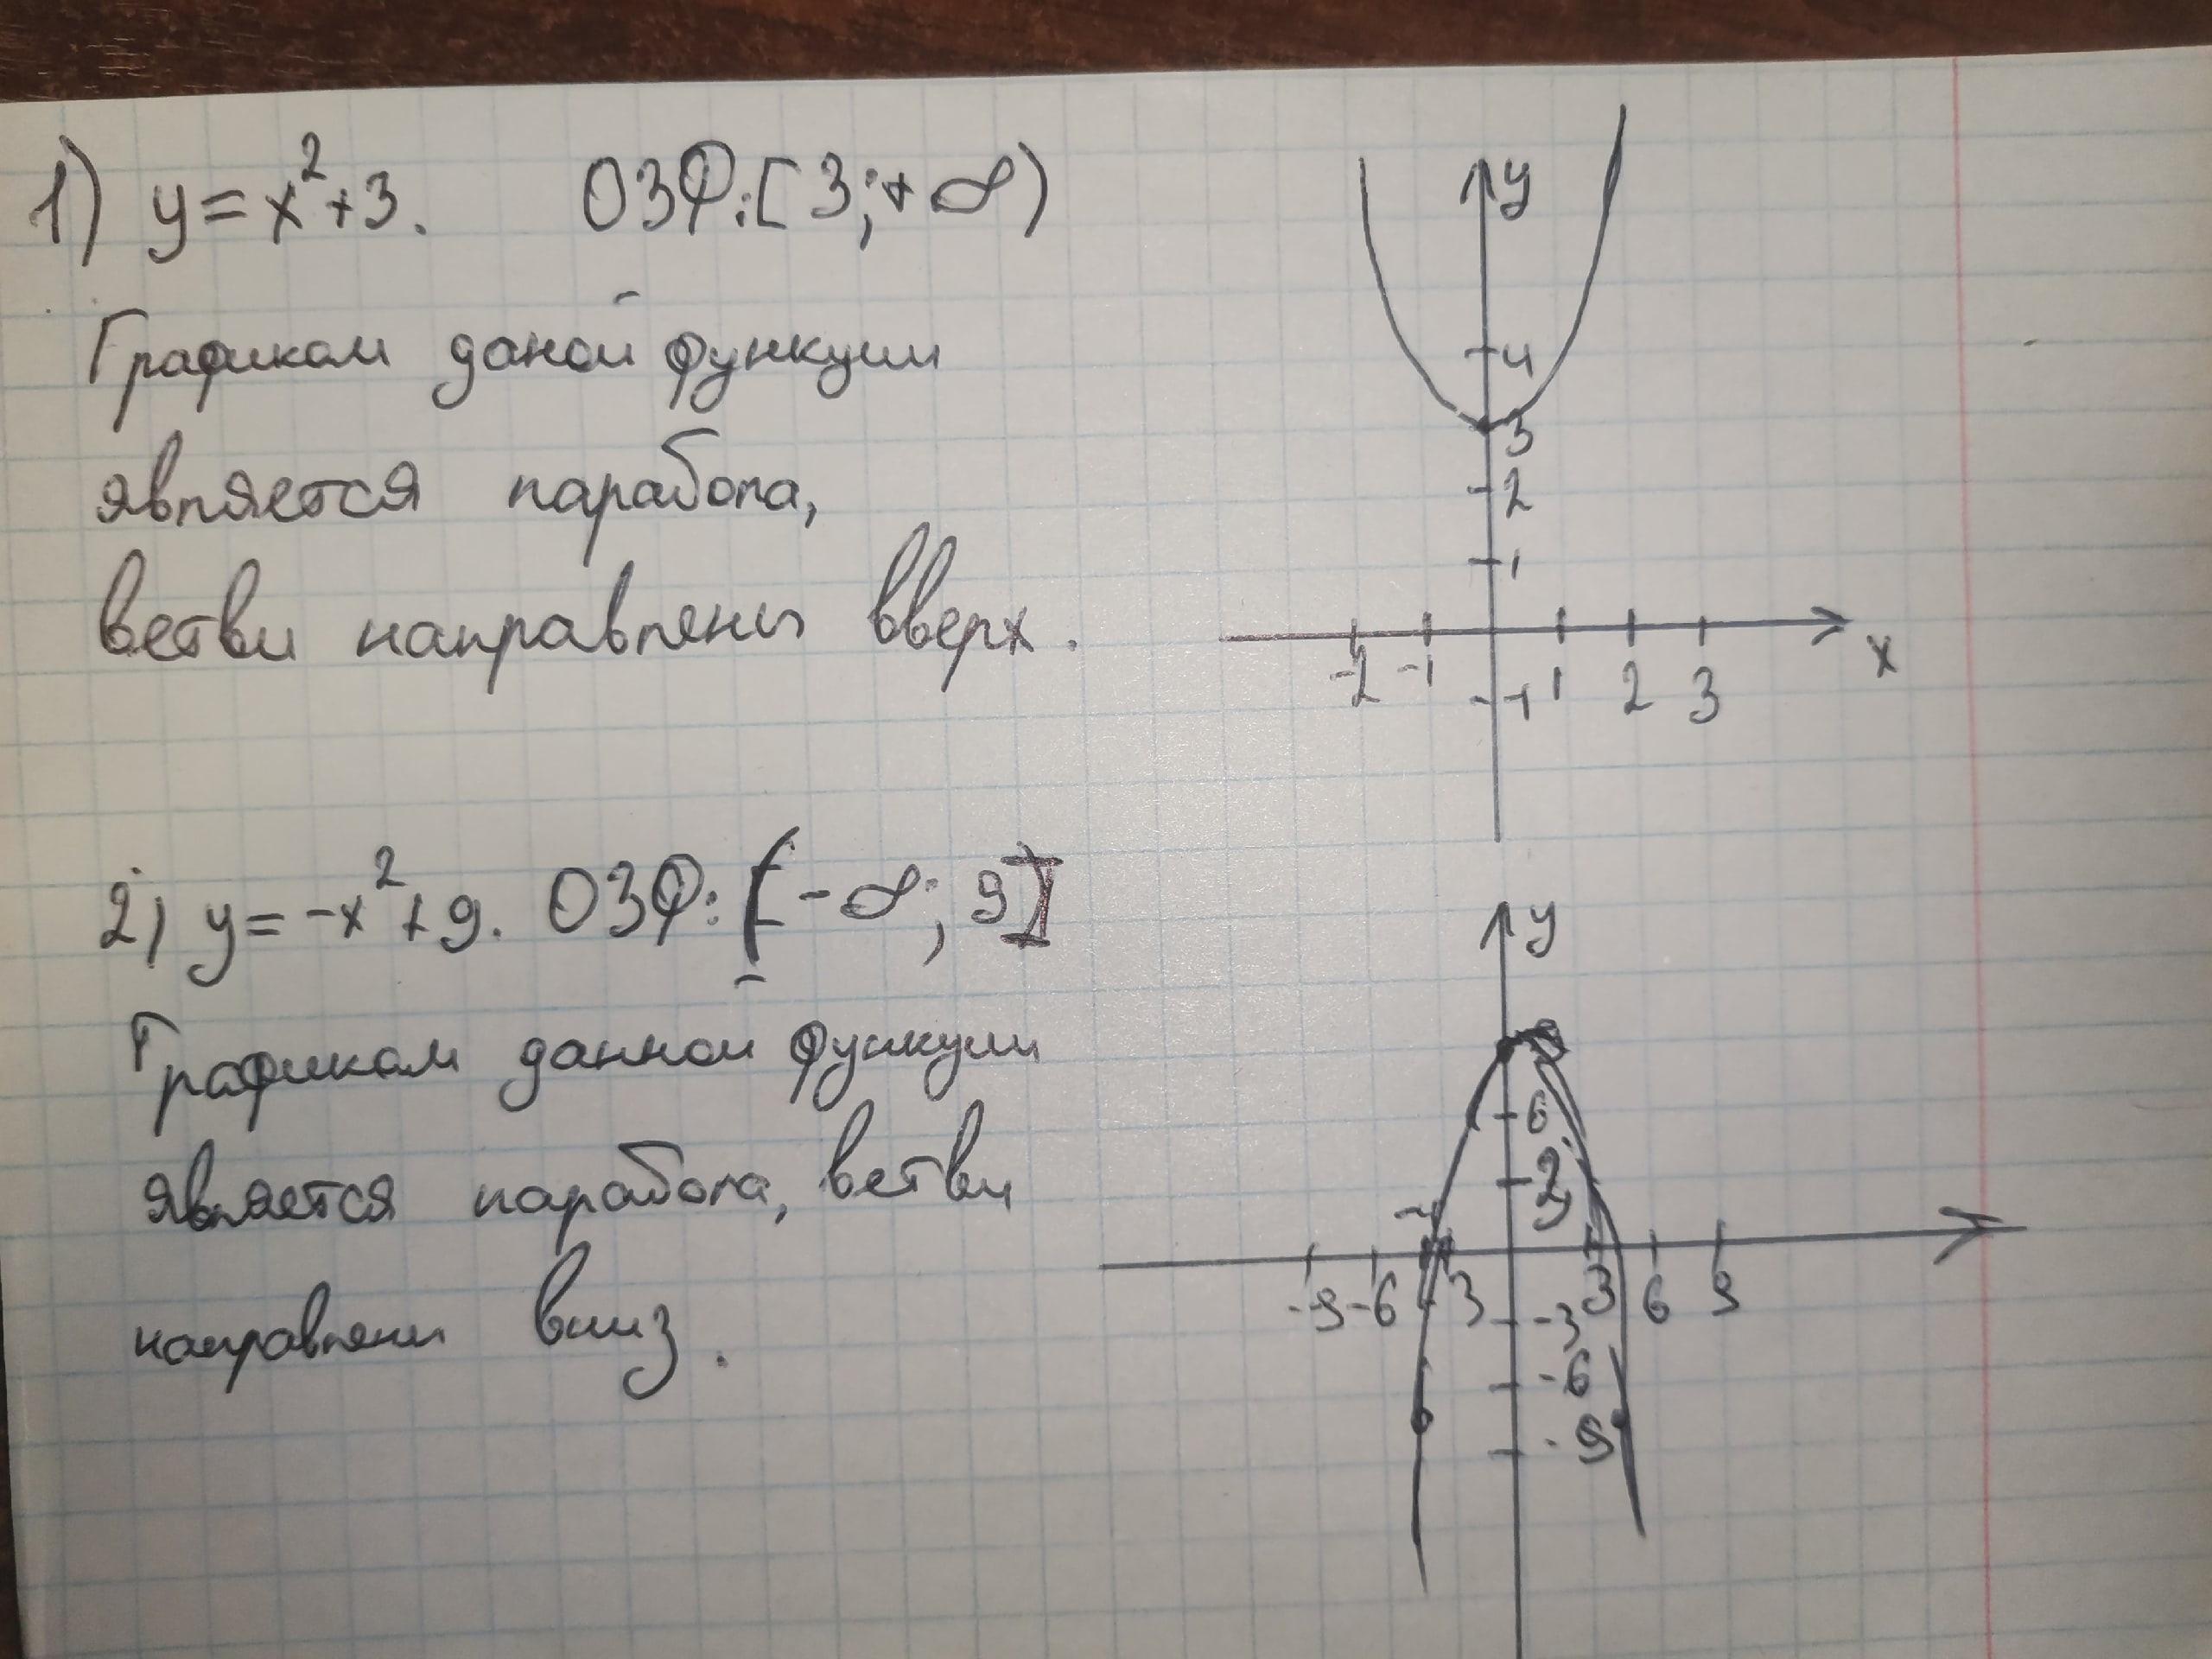 1) y=x²+3. ОЗФ:[3;+∞)
Графиком даной функции
является парабола,
ветви направлены вверх.
y
4
3
2
1
-2 -1 1 2 3 x
-1
2) y=-x²+9. ОЗФ: (-∞; 9]
Графиком данной функции
является парабола, ветви
направлены вниз.
y
6
3
-9 -6 3 3 6 9
-3
-6
-9